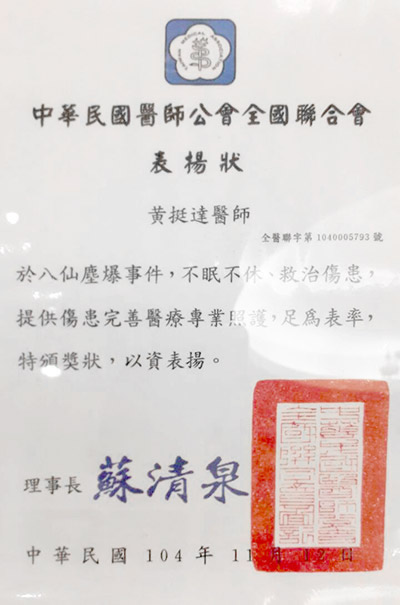 TAIWAN MEDICAL ASSOCIATION
中華民國醫師公會全國聯合會
表揚狀
黃挺達醫師
全醫聯字第1040005793號
於八仙塵爆事件，不眠不休、救治傷患，
提供傷患完善醫療專業照護，足為表率，
特頒獎狀，以資表揚。
理事長 蘇清泉
中華民國 104 年 11 月 12 日